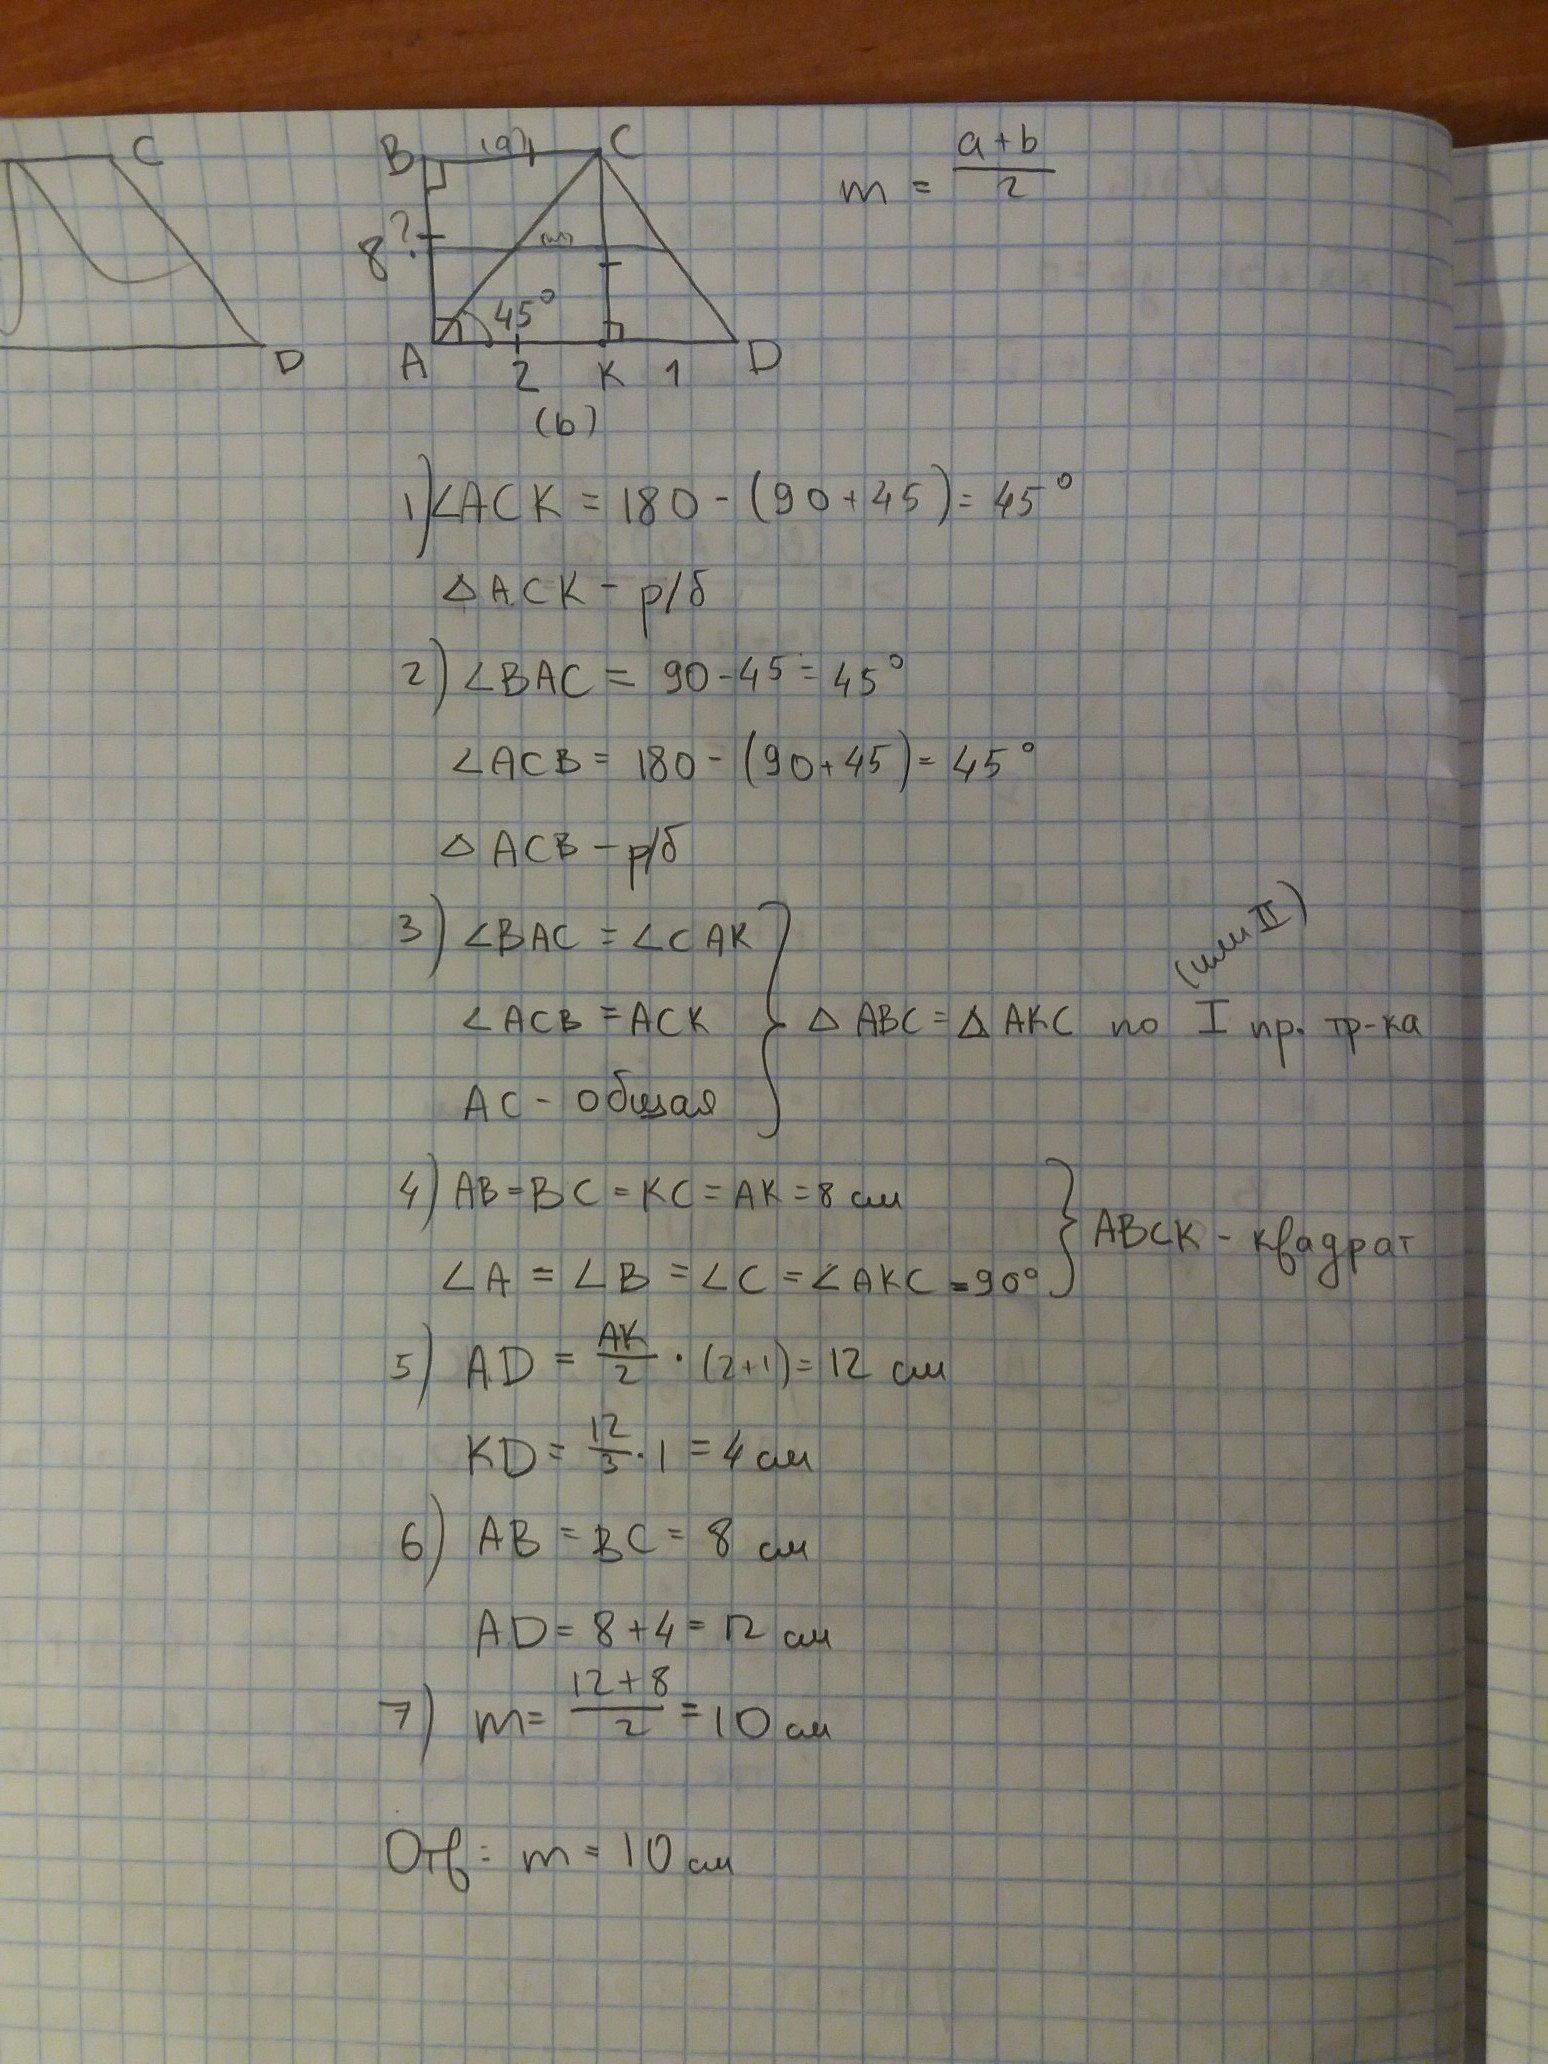 C
D
B (a) C
8 ?
(m)
45°
A 2 K 1 D
(b)
m = a+b / 2
1) ∠ACK = 180 - (90+45) = 45°
△ ACK - р/б
2) ∠BAC = 90-45 = 45°
∠ACB = 180 - (90+45) = 45°
△ ACB - р/б
3) ∠BAC = ∠CAK
∠ACB = ACK
AC - общая
△ ABC = △ AKC по I пр. тр-ка
(или II)
4) AB = BC = KC = AK = 8 см
∠A = ∠B = ∠C = ∠AKC = 90°
ABCK - квадрат
5) AD = AK/2 · (2+1) = 12 см
KD = 12/3 · 1 = 4 см
6) AB = BC = 8 см
AD = 8+4 = 12 см
7) m = 12+8 / 2 = 10 см
Отв: m = 10 см